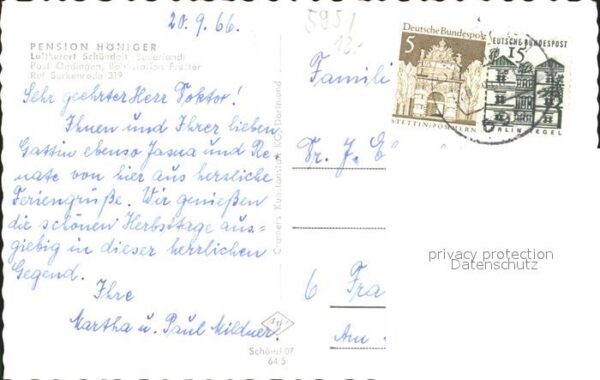 20.9.66.
5951
PENSION HÖNIGER
Luftkurort Schöndelt (Sauerland)
Post Oedingen, Bahnstation Fretter
Ruf Serkenrode 319
Sehr geehrter Herr Doktor!
Ihnen und Ihrer lieben
Gattin ebenso Jasna und Re-
nate von hier aus herzliche
Feriengrüße. Wir genießen
die schönen Herbsttage aus-
giebig in dieser herrlichen
Gegend.
Ihre
Martha u. Paul Mildner.
Cramers Kunstanstalt KG, Dortmund
Schönd 07
64 5
Deutsche Bundespost
5
STETTIN/POMMERN
DEUTSCHE BUNDESPOST
15
BERLIN TEGEL
Famili
Dr. J.
6 Fra
Am
privacy protection
Datenschutz